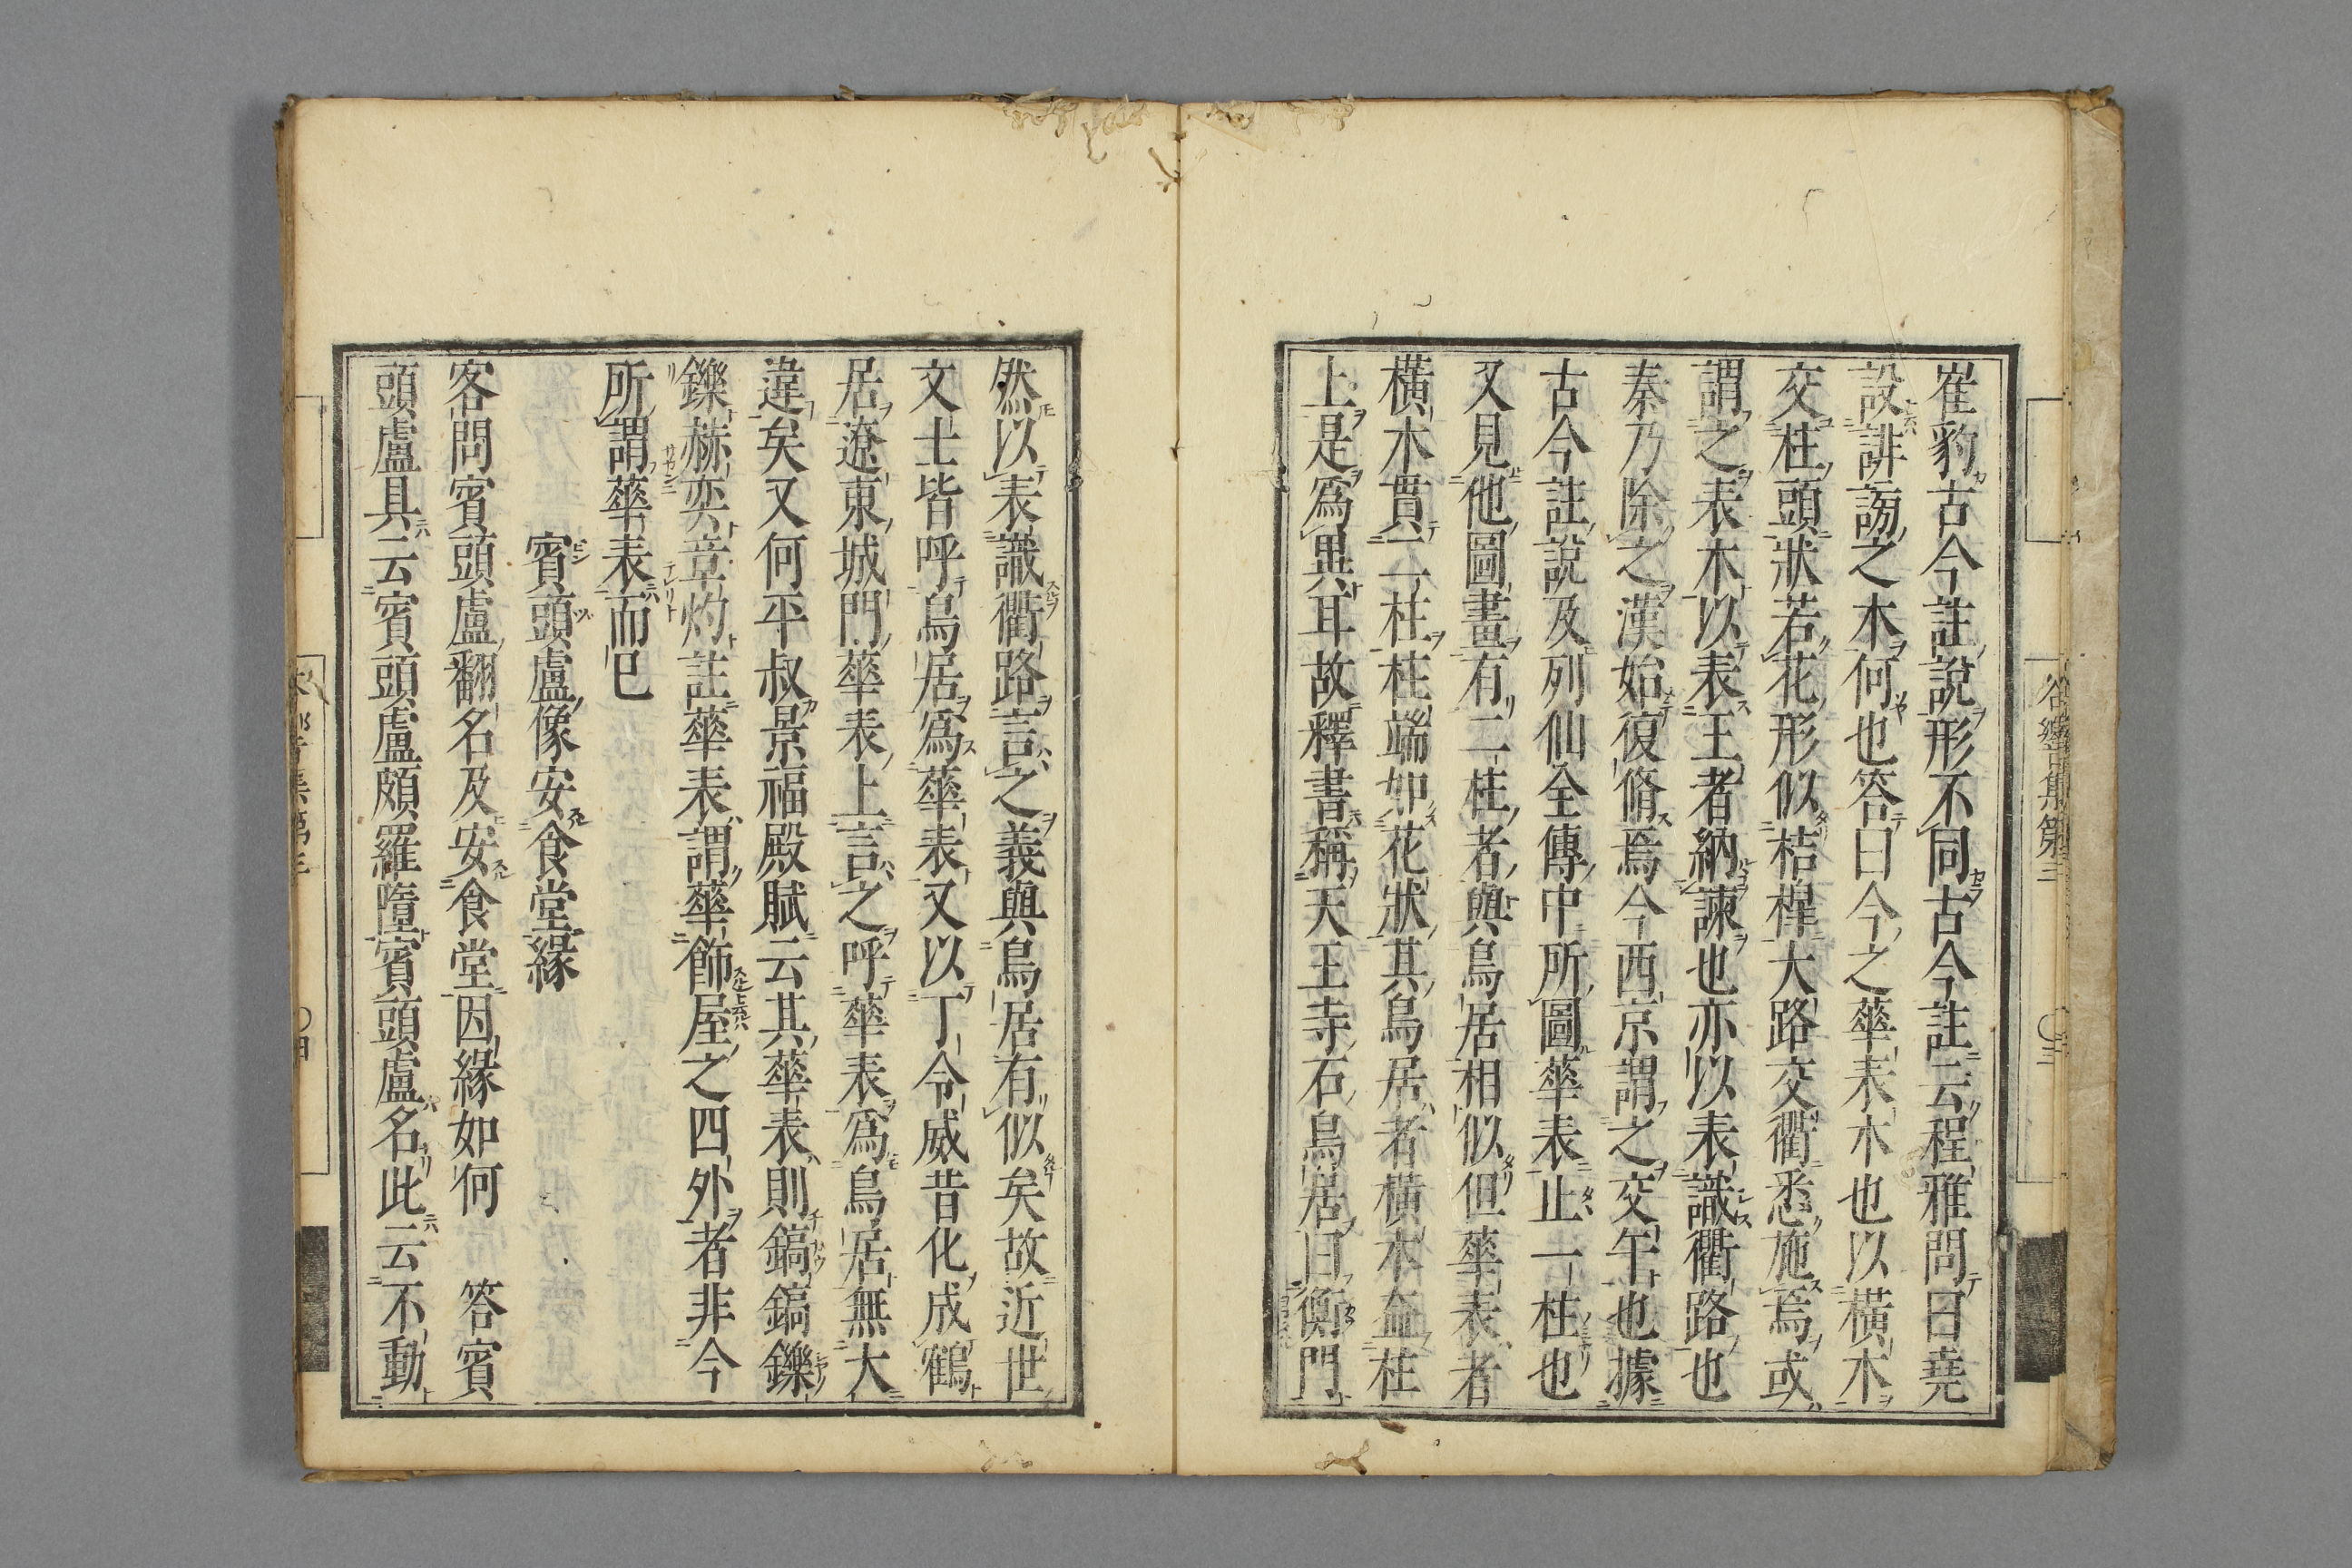 崔豹古今註說形不同古今註云程雅問曰堯
設誹謗之木何也答曰今之華表木也以橫木
交柱頭狀若花形似桔橰大路交衢悉施焉或
謂之表木以表王者納諫也亦以表識衢路也
秦乃除之漢始復脩焉今西京謂之交午也據
古今註說及列仙全傳中所圖華表止一柱也
又見他圖畫有二柱者與鳥居相似但華表者
橫木貫一柱柱端如花狀其鳥居者橫木並柱
上是爲異耳故釋書稱天王寺石鳥居曰衡門
然以表識衢路言之義與鳥居有似矣故近世
文士皆呼鳥居爲華表又以丁令威昔化成鶴
居遼東城門華表上言之呼華表爲鳥居無大
違矣又何平叔景福殿賦云其華表則鎬鎬鑠
鑠赫奕章灼註華表謂華飾屋之四外者非今
所謂華表而已
賓頭盧像安食堂緣
客問賓頭盧翻名及安食堂因緣如何　答賓
頭盧具云賓頭盧頗羅墮賓頭盧名此云不動